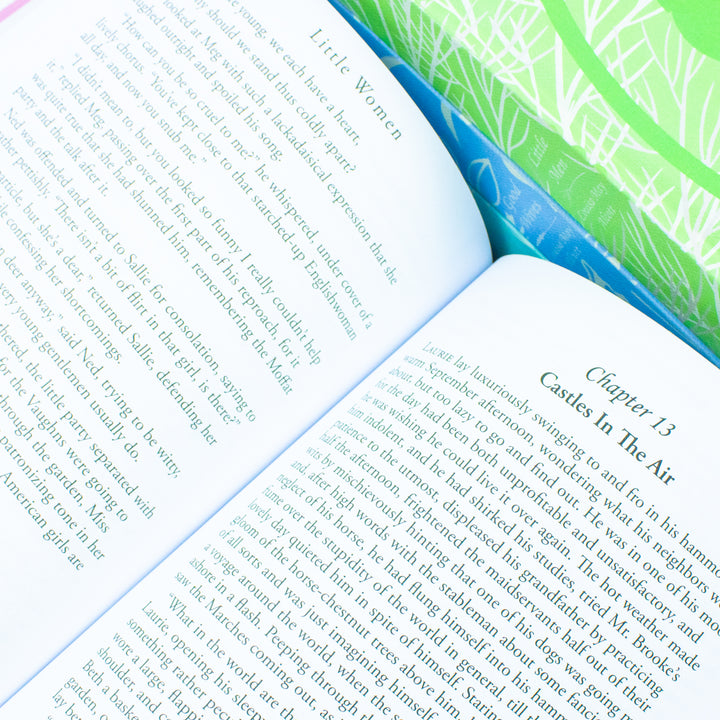 Little Women
e young, we each have a heart,
hy should we stand thus coldly apart?
ooked at Meg with such a lackadaisical expression that she
aughed outright and spoiled his song.
"How can you be so cruel to me?" he whispered, under cover of a
lively chorus. "You've kept close to that starched-up Englishwoman
all day, and now you snub me."
"I didn't mean to, but you looked so funny I really couldn't help
it," replied Meg, passing over the first part of his reproach, for it
was quite true that she had shunned him, remembering the Moffat
party and the talk after it.
Ned was offended and turned to Sallie for consolation, saying to
her pettishly, "There isn't a bit of flirt in that girl, is there?"
article, but she's a dear," returned Sallie, defending her
e confessing her shortcomings.
deer anyway," said Ned, trying to be witty,
ery young gentlemen usually do.
thered, the little party separated with
for the Vaughns were going to
through the garden, Miss
patronizing tone in her
American girls are
Good
Wives
Little
Men
Chapter 13
Castles In The Air
Laurie lay luxuriously swinging to and fro in his hammo
warm September afternoon, wondering what his neighbors w
about, but too lazy to go and find out. He was in one of his mo
for the day had been both unprofitable and unsatisfactory, and
he was wishing he could live it over again. The hot weather made
him indolent, and he had shirked his studies, tried Mr. Brooke's
patience to the utmost, displeased his grandfather by practicing
half the afternoon, frightened the maidservants half out of their
wits by mischievously hinting that one of his dogs was going
and, after high words with the stableman about some fancie
neglect of his horse, he had flung himself into his hamm
fume over the stupidity of the world in general, till
lovely day quieted him in spite of himself. Staring
gloom of the horse-chestnut trees above him,
of all sorts and was just imagining himself
a voyage around the world, when the
ashore in a flash. Peeping through the
saw the Marches coming out, as
"What in the world are
Laurie, opening his sleepy
something rather pecu
wore a large, flappin
shoulder, and c
Beth a baske
garden, o
lay be